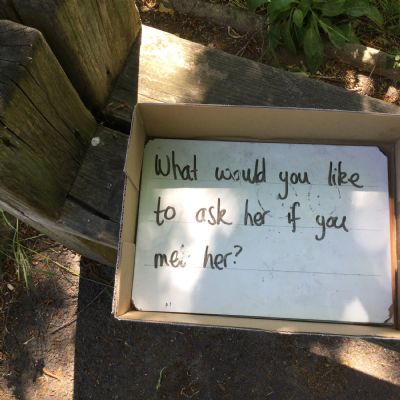 What would you like
to ask her if you
met her?